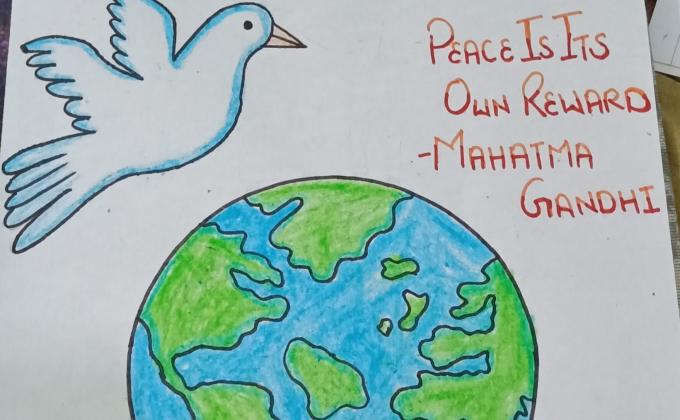 Peace Is Its
Own Reward
-Mahatma
Gandhi